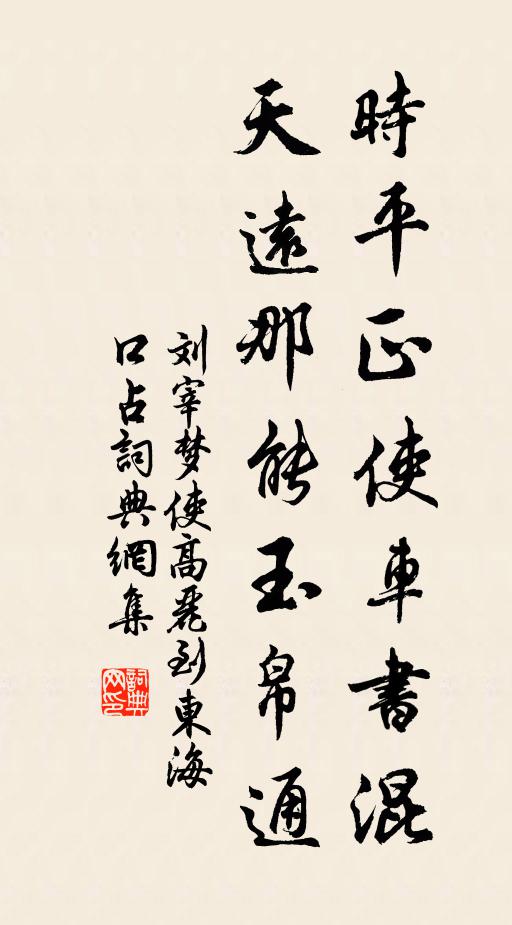 時平正使車書混
天遠那能玉帛通
刘宰梦使高麗到東海
口占詞典網集
詞典網印